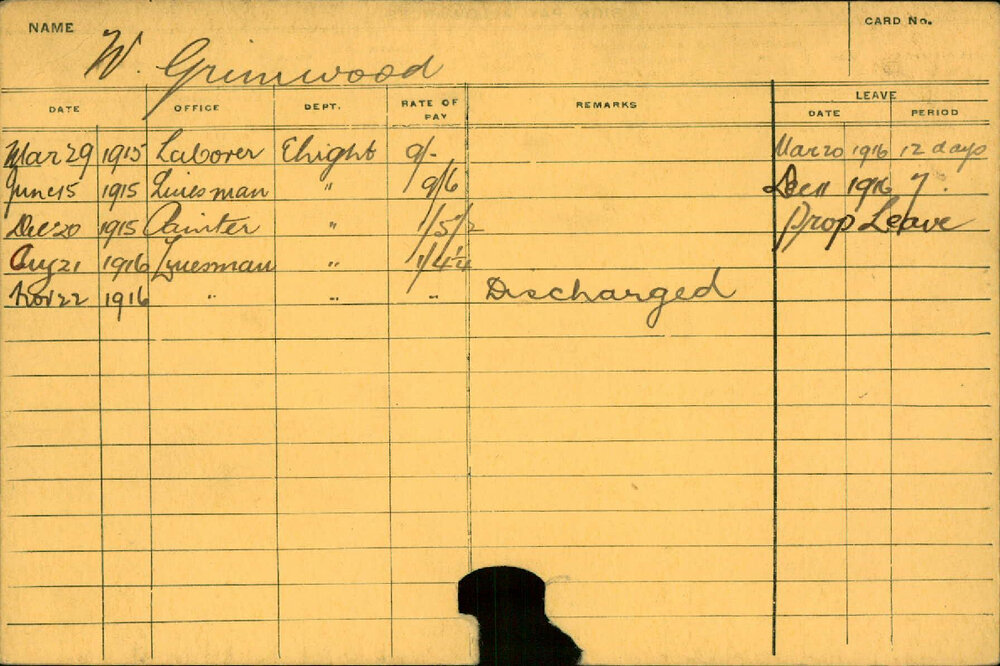 NAME CARD No.
W. Grimwood
DATE OFFICE DEPT. RATE OF PAY REMARKS LEAVE DATE PERIOD
Mar 29 1915 Laborer Elight 9/- Mar 20 1916 12 days
June 15 1915 Linesman " 9/6 Dec 11 1916 7.
Dec 20 1915 Painter " 1/5½ Prop Leave
Aug 21 1916 Linesman " 1/4¼
Nov 22 1916 " " " Discharged